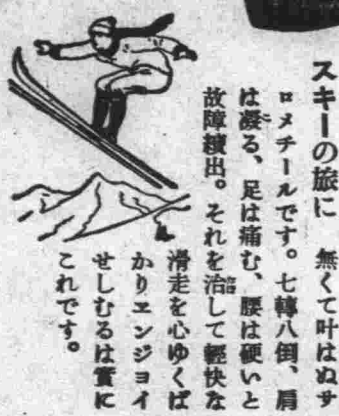 スキーの旅に　無くて叶はぬサ
ロメチールです。七轉八倒、肩
は凝る、足は痛む、腰は硬いと
故障續出。それを治して輕快な
滑走を心ゆくば
かりエンジョイ
せしむるは實に
これです。